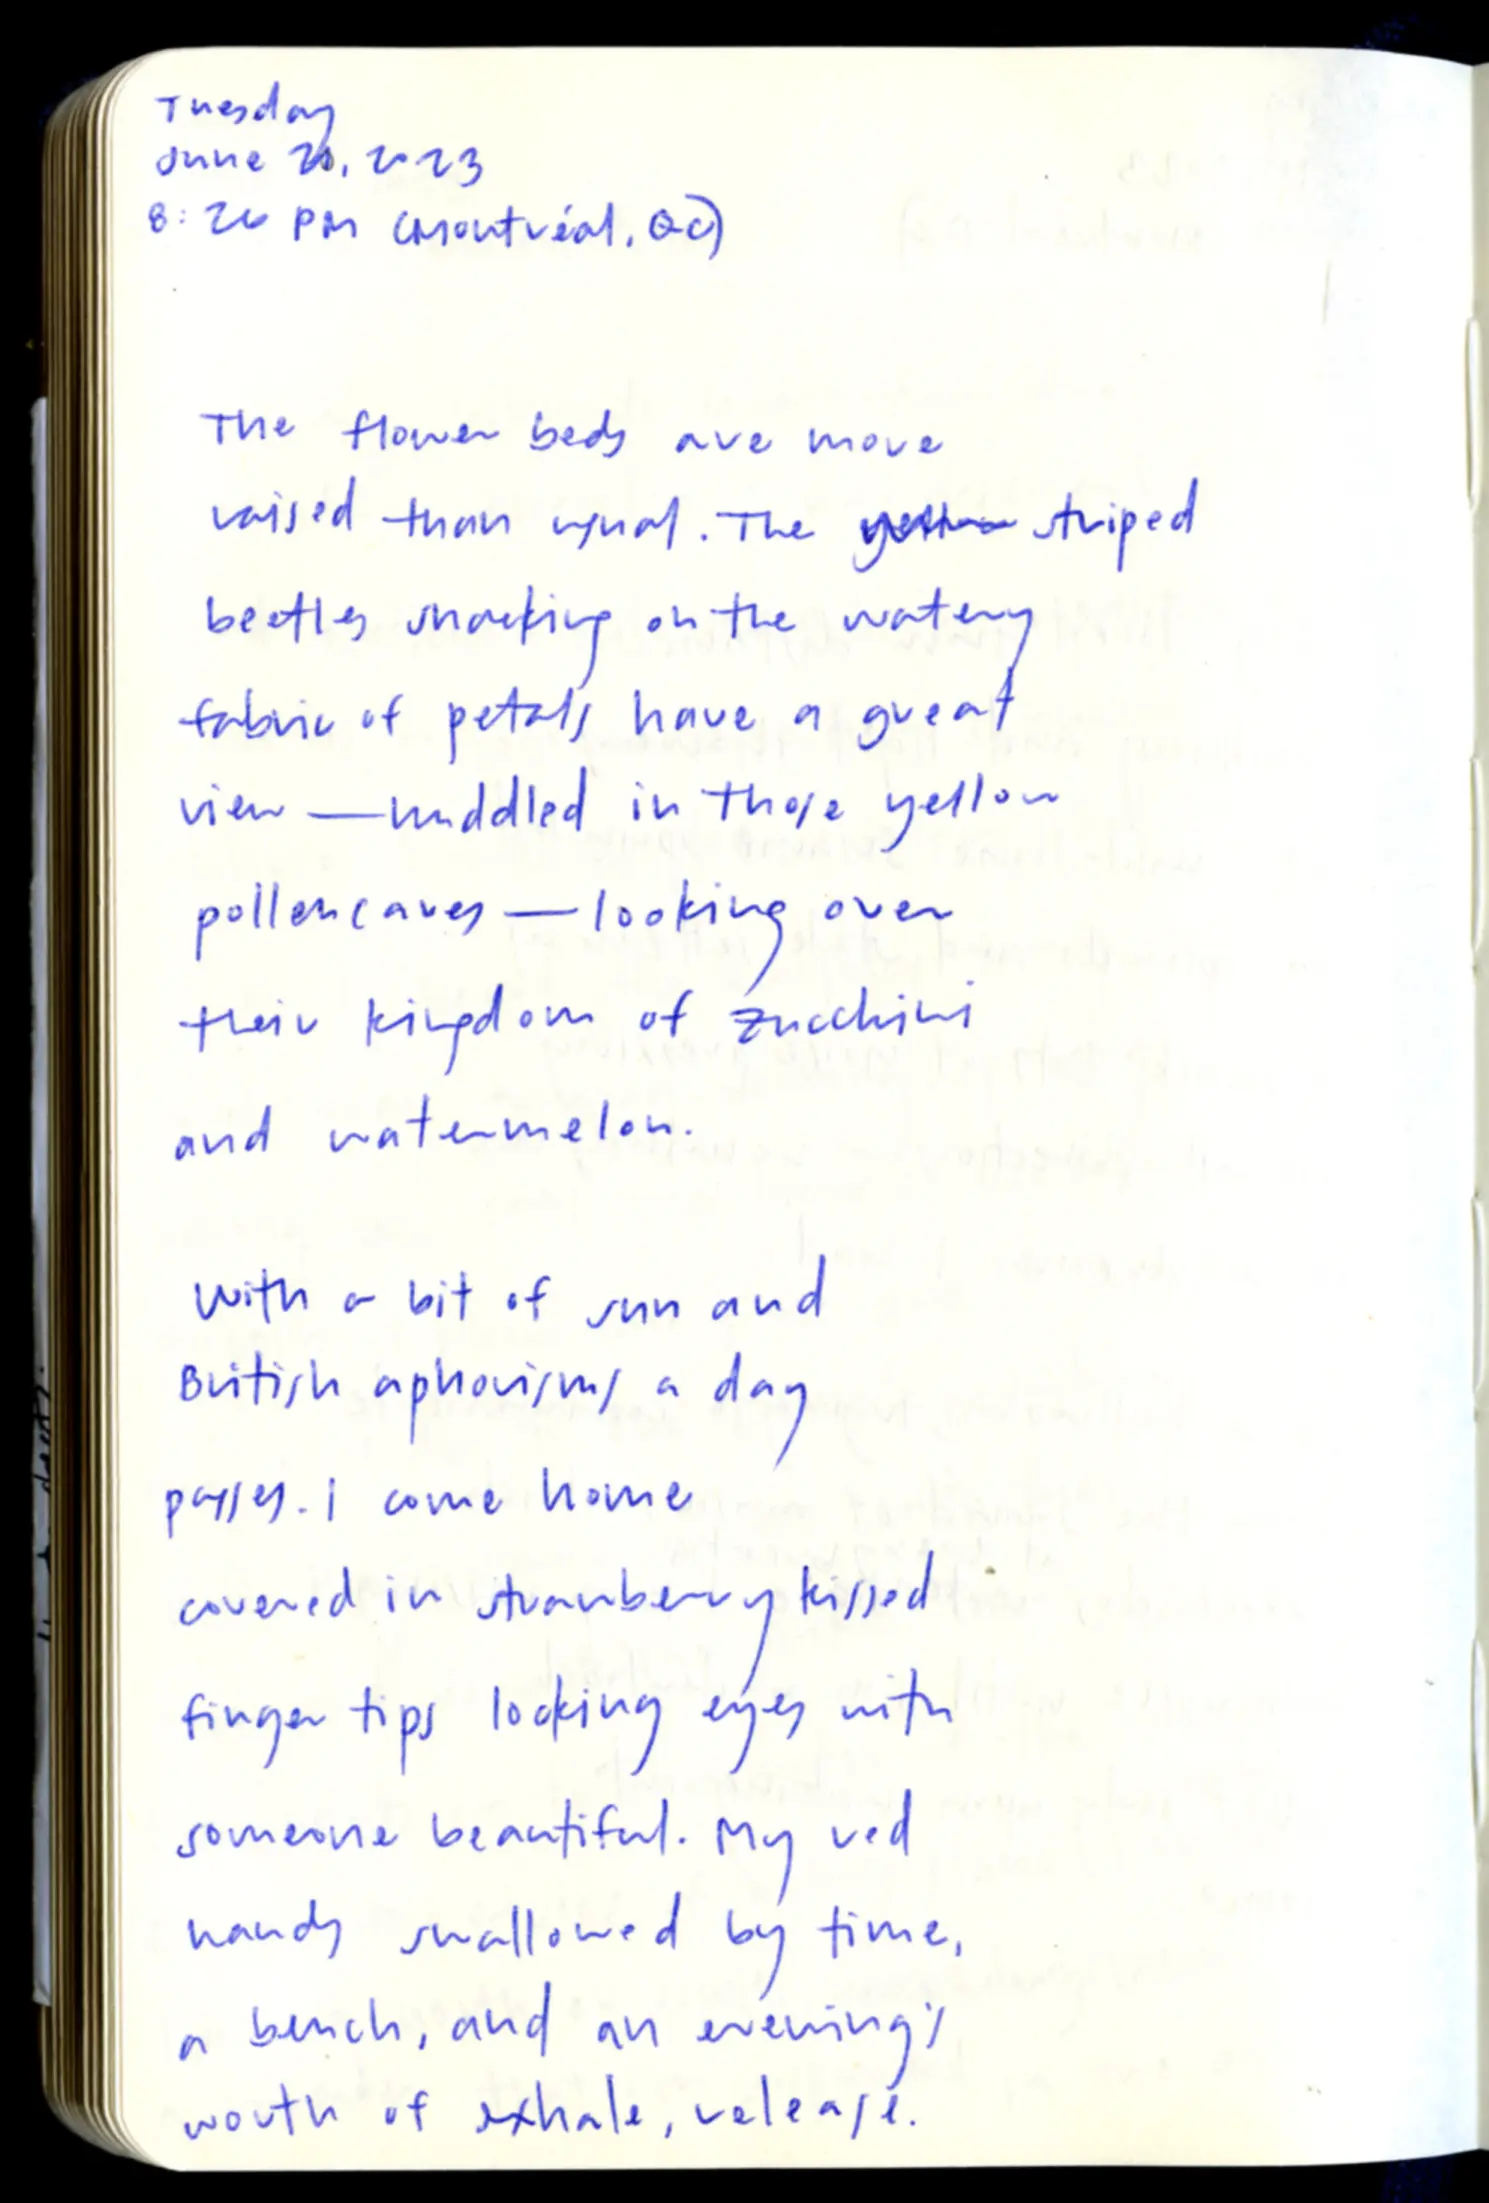 Tuesday
June 20, 2023
8:26 PM (Montréal, QC)
The flower beds are more
raised than usual. The yellow striped
beetles snacking on the watery
fabric of petals have a great
view — huddled in those yellow
pollen caves — looking over
their kingdom of zucchini
and watermelon.
With a bit of sun and
British aphorisms a day
passes. I come home
covered in strawberry kissed
finger tips locking eyes with
someone beautiful. My red
hands swallowed by time,
a bench, and an evening's
worth of exhale, release.